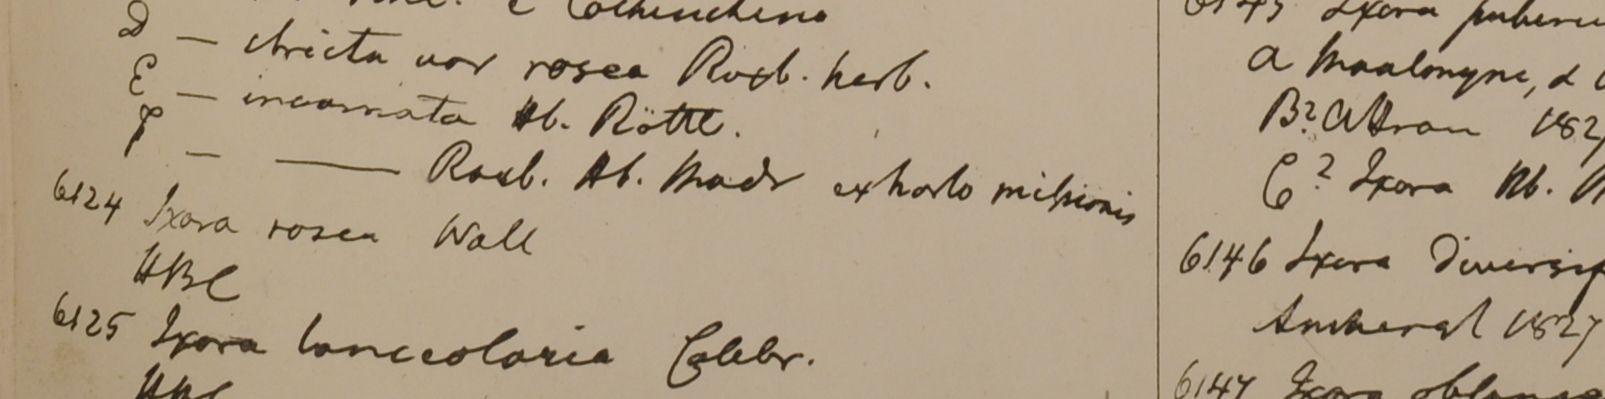 C Cochinchina
D — stricta var rosea Roxb. herb.
E — incarnata Hb. Röttl.
F — —— Roxb. Hb. Madr ex horto missionis
6124 Ixora rosea Wall
HBC
6125 Ixora lanceolaria Colebr.
HBC
6145 Ixora puberu
a Moalmyne, &
B? Attran 182
C? Ixora Hb.
6146 Ixora diversif
Amherst 1827
6147 Ixora oblonga